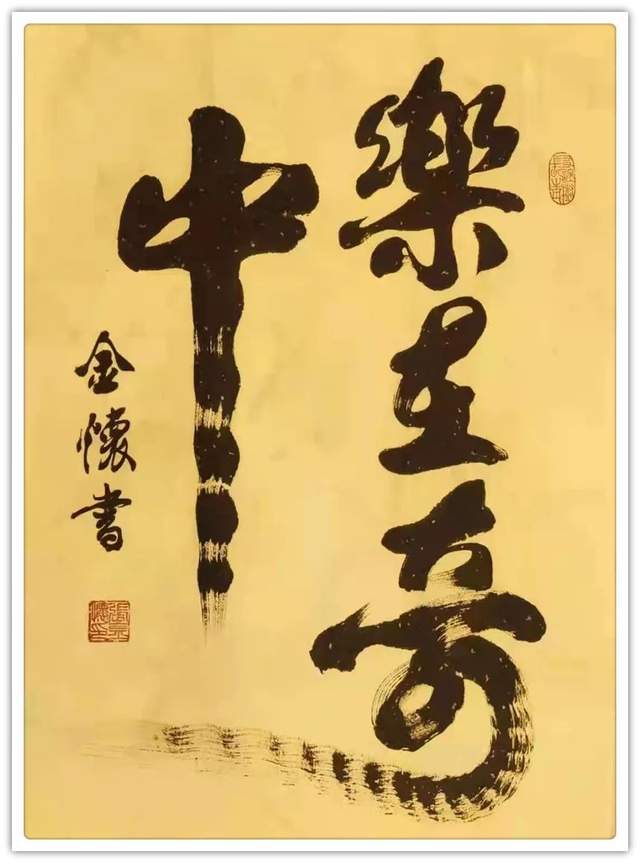 樂在奇
中
金懷書